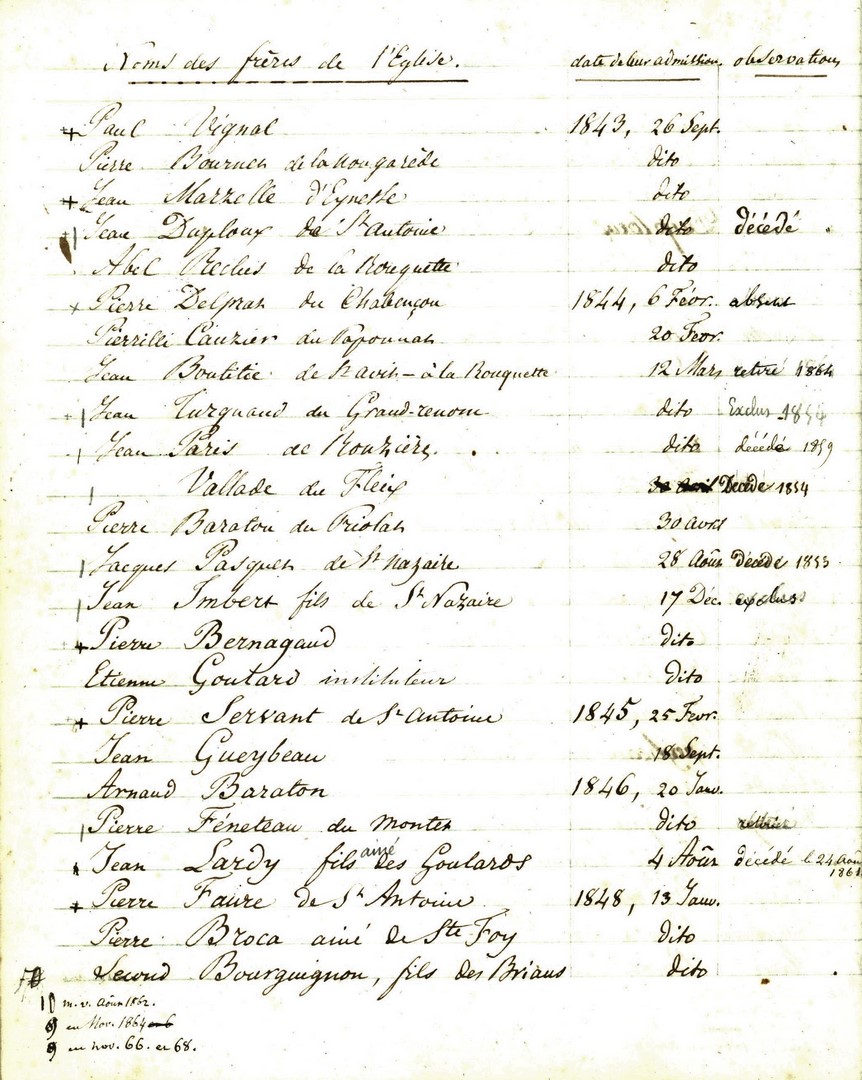 Noms des frères de l'Eglise. date de leur admission. observation
+ Paul Vignal 1843, 26 Sept.
Pierre Bournet de la nougarède dito
+ Jean Marzelle d'Eynesse dito
+| Jean Duploux de St Antoine dito décédé .
Abel Reclus de la Rouquette dito
+ Pierre Delpras du Chabençon 1844, 6 Févr. absent
Pierrille Cauzier du Paponnat 20 Fevr.
Jean Boutitie de St avit - à la Rouquette 12 Mars retiré 1864
+| Jean Turgnaud du Grand-renom dito Exclus 1854
| Jean Paris de Rouzière. dito décédé 1859
| Vallade du Fleix Décédé 1854
Pierre Baraton du Priolat 30 avril
| Jacques Pasquet de St nazaire 28 Août décédé 1853.
| Jean Imbert fils de St Nazaire 17 Déc. exclus
+ Pierre Bernagaud dito
Etienne Goutard instituteur dito
+ Pierre Servant de St Antoine 1845, 25 Fevr.
Jean Gueybeau 18 Sept.
Arnaud Baraton 1846, 20 Janv.
| Pierre Féneteau du Montet dito
Jean Lardy fils aîné des Goulards 4 Août décédé le 24 Août 1861
+ Pierre Faure de St Antoine 1848, 13 Janv.
Pierre Broca ainé de Ste Foy dito
Second Bourguignon, fils des Briaus dito
10 m.v. Août 1862.
9 en Nov. 1864
9 en nov. 66. et 68.